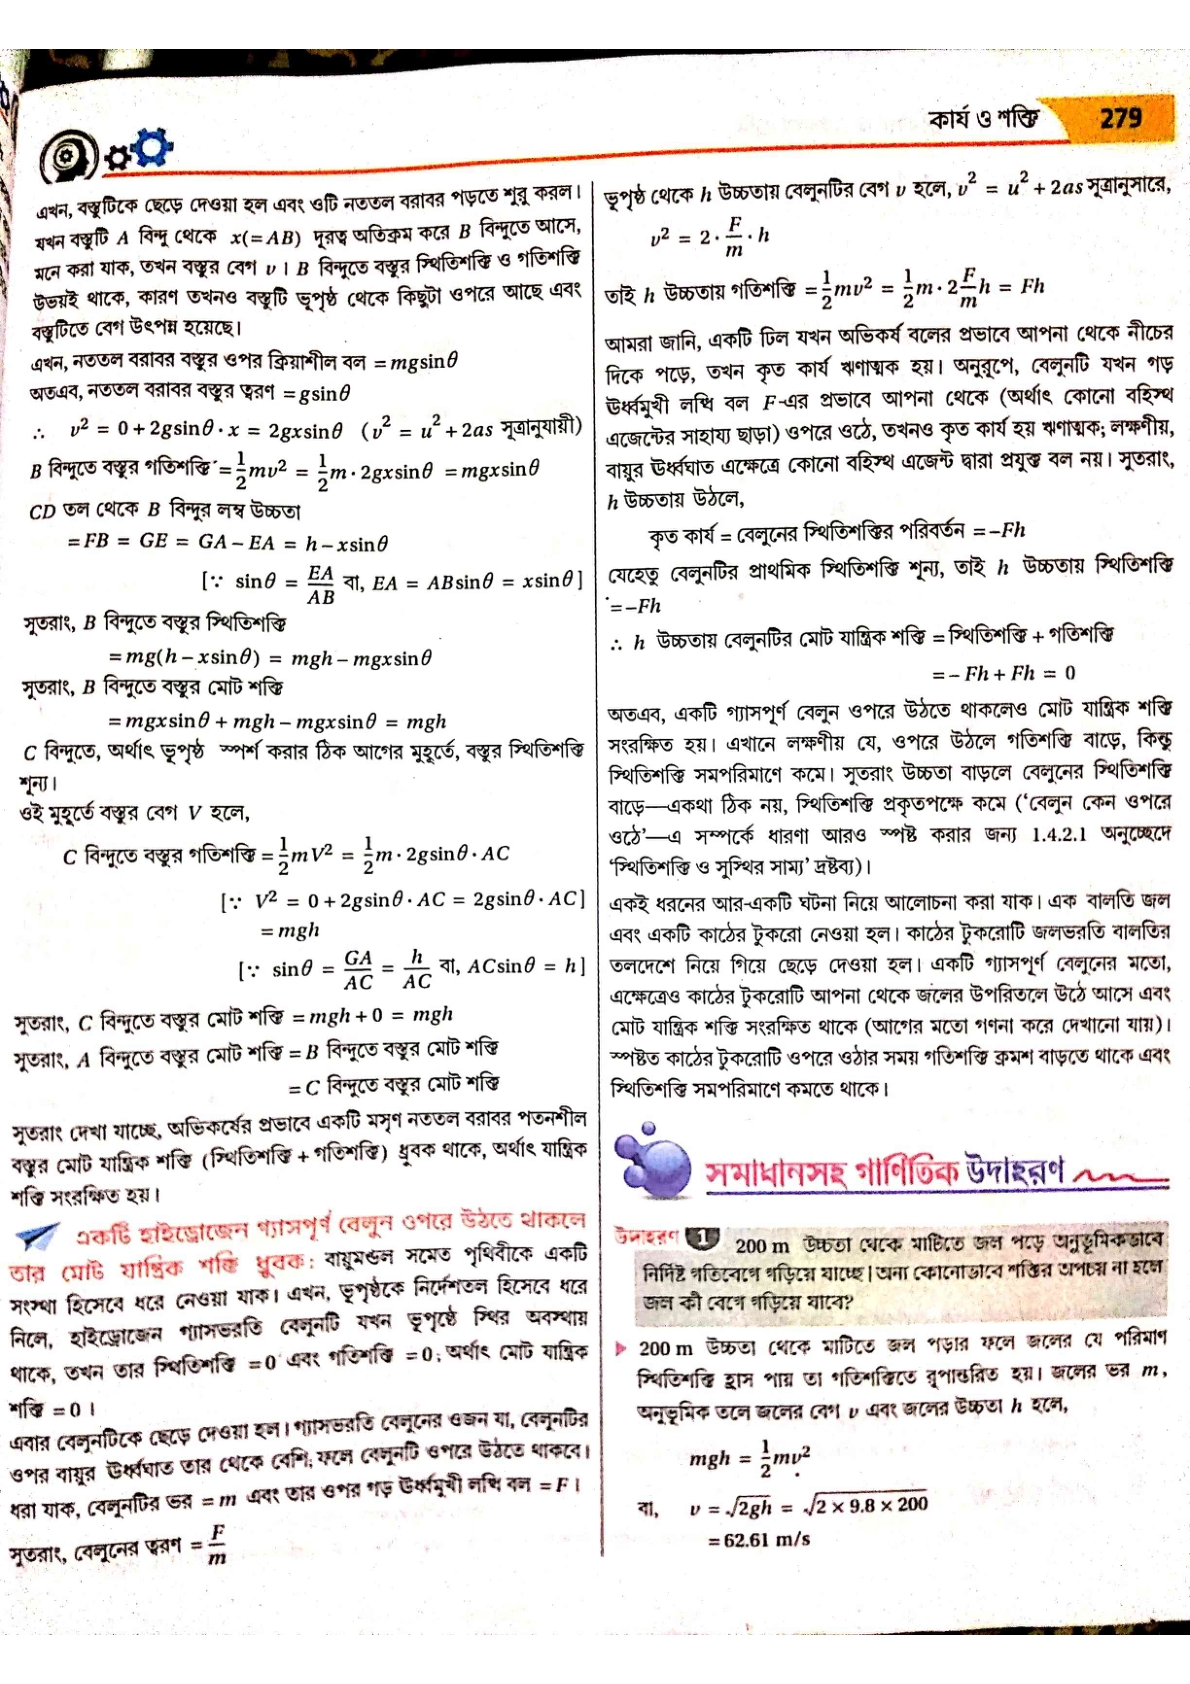 কার্য ও শক্তি 279
এখন, বস্তুটিকে ছেড়ে দেওয়া হল এবং ওটি নততল বরাবর পড়তে শুরু করল।
যখন বস্তুটি A বিন্দু থেকে x(= AB) দূরত্ব অতিক্রম করে B বিন্দুতে আসে,
মনে করা যাক, তখন বস্তুর বেগ v । B বিন্দুতে বস্তুর স্থিতিশক্তি ও গতিশক্তি
উভয়ই থাকে, কারণ তখনও বস্তুটি ভূপৃষ্ঠ থেকে কিছুটা ওপরে আছে এবং
বস্তুটিতে বেগ উৎপন্ন হয়েছে।
এখন, নততল বরাবর বস্তুর ওপর ক্রিয়াশীল বল = mgsinθ
অতএব, নততল বরাবর বস্তুর ত্বরণ = gsinθ
∴ v² = 0 + 2gsinθ · x = 2gxsinθ (v² = u² + 2as সূত্রানুযায়ী)
B বিন্দুতে বস্তুর গতিশক্তি = 1/2 mv² = 1/2 m · 2gxsinθ = mgxsinθ
CD তল থেকে B বিন্দুর লম্ব উচ্চতা
= FB = GE = GA – EA = h – xsinθ
[∵ sinθ = EA/AB বা, EA = ABsinθ = xsinθ]
সুতরাং, B বিন্দুতে বস্তুর স্থিতিশক্তি
= mg(h – xsinθ) = mgh – mgxsinθ
সুতরাং, B বিন্দুতে বস্তুর মোট শক্তি
= mgxsinθ + mgh – mgxsinθ = mgh
C বিন্দুতে, অর্থাৎ ভূপৃষ্ঠ স্পর্শ করার ঠিক আগের মুহূর্তে, বস্তুর স্থিতিশক্তি
শূন্য।
ওই মুহূর্তে বস্তুর বেগ V হলে,
C বিন্দুতে বস্তুর গতিশক্তি = 1/2 mV² = 1/2 m · 2gsinθ · AC
[∵ V² = 0 + 2gsinθ · AC = 2gsinθ · AC]
= mgh
[∵ sinθ = GA/AC = h/AC বা, ACsinθ = h]
সুতরাং, C বিন্দুতে বস্তুর মোট শক্তি = mgh + 0 = mgh
সুতরাং, A বিন্দুতে বস্তুর মোট শক্তি = B বিন্দুতে বস্তুর মোট শক্তি
= C বিন্দুতে বস্তুর মোট শক্তি
সুতরাং দেখা যাচ্ছে, অভিকর্ষের প্রভাবে একটি মসৃণ নততল বরাবর পতনশীল
বস্তুর মোট যান্ত্রিক শক্তি (স্থিতিশক্তি + গতিশক্তি) ধ্রুবক থাকে, অর্থাৎ যান্ত্রিক
শক্তি সংরক্ষিত হয়।
একটি হাইড্রোজেন গ্যাসপূর্ণ বেলুন ওপরে উঠতে থাকলে
তার মোট যান্ত্রিক শক্তি ধ্রুবক : বায়ুমণ্ডল সমেত পৃথিবীকে একটি
সংস্থা হিসেবে ধরে নেওয়া যাক। এখন, ভূপৃষ্ঠকে নির্দেশতল হিসেবে ধরে
নিলে, হাইড্রোজেন গ্যাসভরতি বেলুনটি যখন ভূপৃষ্ঠে স্থির অবস্থায়
থাকে, তখন তার স্থিতিশক্তি = 0 এবং গতিশক্তি = 0; অর্থাৎ মোট যান্ত্রিক
শক্তি = 0 ।
এবার বেলুনটিকে ছেড়ে দেওয়া হল। গ্যাসভরতি বেলুনের ওজন যা, বেলুনটির
ওপর বায়ুর ঊর্ধ্বঘাত তার থেকে বেশি; ফলে বেলুনটি ওপরে উঠতে থাকবে।
ধরা যাক, বেলুনটির ভর = m এবং তার ওপর গড় ঊর্ধ্বমুখী লব্ধি বল = F ।
সুতরাং, বেলুনের ত্বরণ = F/m
ভূপৃষ্ঠ থেকে h উচ্চতায় বেলুনটির বেগ v হলে, v² = u² + 2as সূত্রানুসারে,
v² = 2 · F/m · h
তাই h উচ্চতায় গতিশক্তি = 1/2 mv² = 1/2 m · 2 F/m h = Fh
আমরা জানি, একটি ঢিল যখন অভিকর্ষ বলের প্রভাবে আপনা থেকে নীচের
দিকে পড়ে, তখন কৃত কার্য ঋণাত্মক হয়। অনুরূপে, বেলুনটি যখন গড়
ঊর্ধ্বমুখী লব্ধি বল F-এর প্রভাবে আপনা থেকে (অর্থাৎ কোনো বহিস্থ
এজেন্টের সাহায্য ছাড়া) ওপরে ওঠে, তখনও কৃত কার্য হয় ঋণাত্মক; লক্ষণীয়,
বায়ুর ঊর্ধ্বঘাত এক্ষেত্রে কোনো বহিস্থ এজেন্ট দ্বারা প্রযুক্ত বল নয়। সুতরাং,
h উচ্চতায় উঠলে,
কৃত কার্য = বেলুনের স্থিতিশক্তির পরিবর্তন = –Fh
যেহেতু বেলুনটির প্রাথমিক স্থিতিশক্তি শূন্য, তাই h উচ্চতায় স্থিতিশক্তি
= –Fh
∴ h উচ্চতায় বেলুনটির মোট যান্ত্রিক শক্তি = স্থিতিশক্তি + গতিশক্তি
= – Fh + Fh = 0
অতএব, একটি গ্যাসপূর্ণ বেলুন ওপরে উঠতে থাকলেও মোট যান্ত্রিক শক্তি
সংরক্ষিত হয়। এখানে লক্ষণীয় যে, ওপরে উঠলে গতিশক্তি বাড়ে, কিন্তু
স্থিতিশক্তি সমপরিমাণে কমে। সুতরাং উচ্চতা বাড়লে বেলুনের স্থিতিশক্তি
বাড়ে—একথা ঠিক নয়, স্থিতিশক্তি প্রকৃতপক্ষে কমে (‘বেলুন কেন ওপরে
ওঠে’—এ সম্পর্কে ধারণা আরও স্পষ্ট করার জন্য 1.4.2.1 অনুচ্ছেদে
‘স্থিতিশক্তি ও সুস্থির সাম্য’ দ্রষ্টব্য)।
একই ধরনের আর-একটি ঘটনা নিয়ে আলোচনা করা যাক। এক বালতি জল
এবং একটি কাঠের টুকরো নেওয়া হল। কাঠের টুকরোটি জলভরতি বালতির
তলদেশে নিয়ে গিয়ে ছেড়ে দেওয়া হল। একটি গ্যাসপূর্ণ বেলুনের মতো,
এক্ষেত্রেও কাঠের টুকরোটি আপনা থেকে জলের উপরিতলে উঠে আসে এবং
মোট যান্ত্রিক শক্তি সংরক্ষিত থাকে (আগের মতো গণনা করে দেখানো যায়)।
স্পষ্টত কাঠের টুকরোটি ওপরে ওঠার সময় গতিশক্তি ক্রমশ বাড়তে থাকে এবং
স্থিতিশক্তি সমপরিমাণে কমতে থাকে।
সমাধানসহ গাণিতিক উদাহরণ
উদাহরণ 1 200 m উচ্চতা থেকে মাটিতে জল পড়ে অনুভূমিকভাবে
নির্দিষ্ট গতিবেগে গড়িয়ে যাচ্ছে। অন্য কোনোভাবে শক্তির অপচয় না হলে
জল কী বেগে গড়িয়ে যাবে?
200 m উচ্চতা থেকে মাটিতে জল পড়ার ফলে জলের যে পরিমাণ
স্থিতিশক্তি হ্রাস পায় তা গতিশক্তিতে রূপান্তরিত হয়। জলের ভর m,
অনুভূমিক তলে জলের বেগ v এবং জলের উচ্চতা h হলে,
mgh = 1/2 mv²
বা, v = √2gh = √2 × 9.8 × 200
= 62.61 m/s